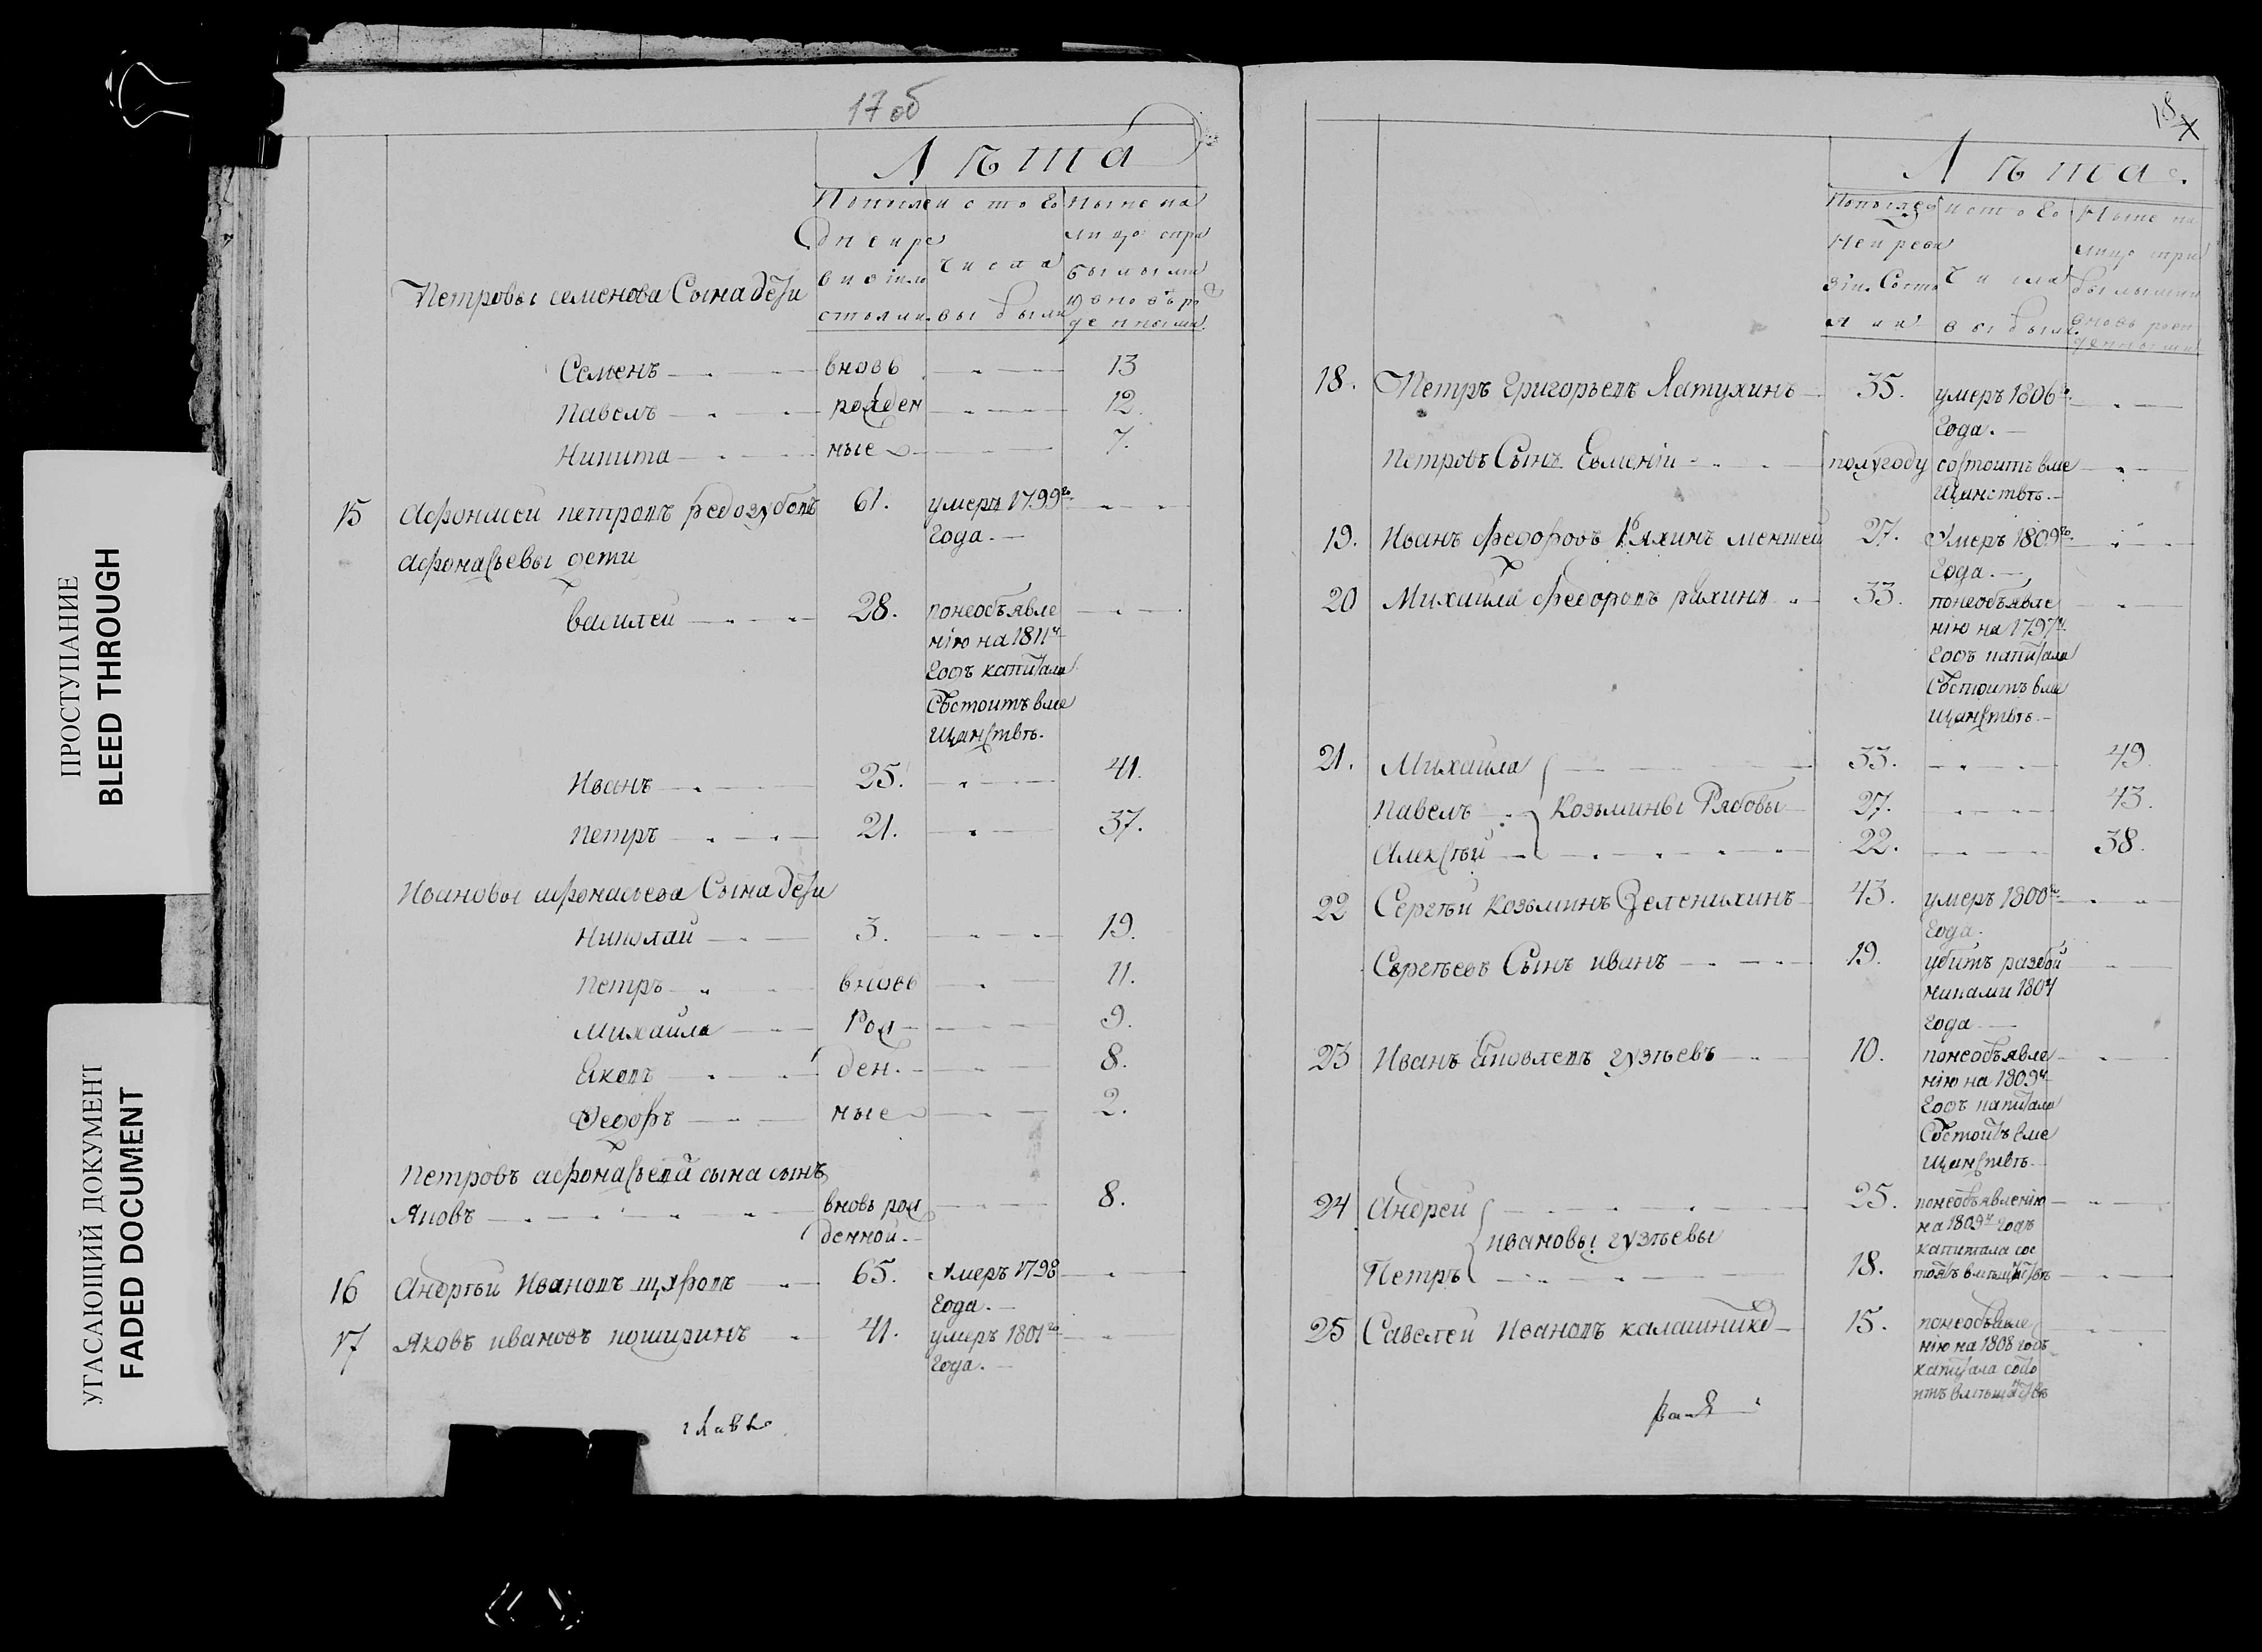 ПРОСТУПАНИЕ
BLEED THROUGH
УГАСАЮЩИЙ ДОКУМЕНТ
FADED DOCUMENT
17 об
Лѣта
Попослед и с того Ныне на
дней ре лицо спри
визіи числа былыми
состояли. выбыли. и вновь рож
денными.
Петровы семенова Сына дети
Семенъ 13
Павелъ 12.
Никита 7.
вновь
рожден
ные
15 Афонасей петровъ редозубовъ 61. умеръ 1799го
года.
Афонасьевы дети
василей 28. понеобъявле
нію на 1811й
годъ капитала
Состоитъ вме
щанствѣ.
Иванъ 25. 41.
Петръ 21. 37.
Ивановы афонасьева Сына дети
Николай 3. 19.
Петръ вновь 11.
Михаила Рож 9.
Яковъ ден. 8.
Федоръ ные 2.
Петровъ афонасьева сына сынъ
Яковъ вновь рож 8.
денной.
16 Андрѣй Ивановъ щуровъ 65. Умеръ 1798
года.
17 Яковъ ивановъ коширинъ 41. умеръ 1801го
года.
18
Лѣта.
Попослед и с того Ныне на
ней реви лицо спри
зіи. Состо числа былыми
яли выбыли. вновь рож
денными
18. Петръ Григорьевъ Латухинъ 35. умеръ 1806го
года.
Петровъ Сынъ Евменій полугоду состоитъ вме
щанствѣ.
19. Иванъ федоровъ Ряхинъ меншей 27. Умеръ 1809го
года.
20 Михаила федоровъ ряхинъ 33. понеобъявле
нію на 1797й
годъ капитала
Состоитъ вме
щанствѣ.
21. Михаила 33. 49.
Павелъ Козьмины Рябовы 27. 43.
Алексѣй 22. 38.
22 Сергѣй Козьминъ Зеленихинъ 43. умеръ 1800го
года.
Сергѣевъ Сынъ иванъ 19. убитъ разбой
никами 1804
года
23 Иванъ яковлевъ гузѣевъ 10. понеобъявле
нію на 1809й
годъ капитала
Состоитъ вме
щанствѣ.
24 Андрей 25. понеобъявленію
на 1809й годъ
ивановы гузѣевы
капитала сос
Петръ 18. тоятъ вмѣщанствѣ
25 Савелей Ивановъ калашников 15. понеобъявле
нію на 1808 годъ
капитала состо
итъ вмѣщанствѣ